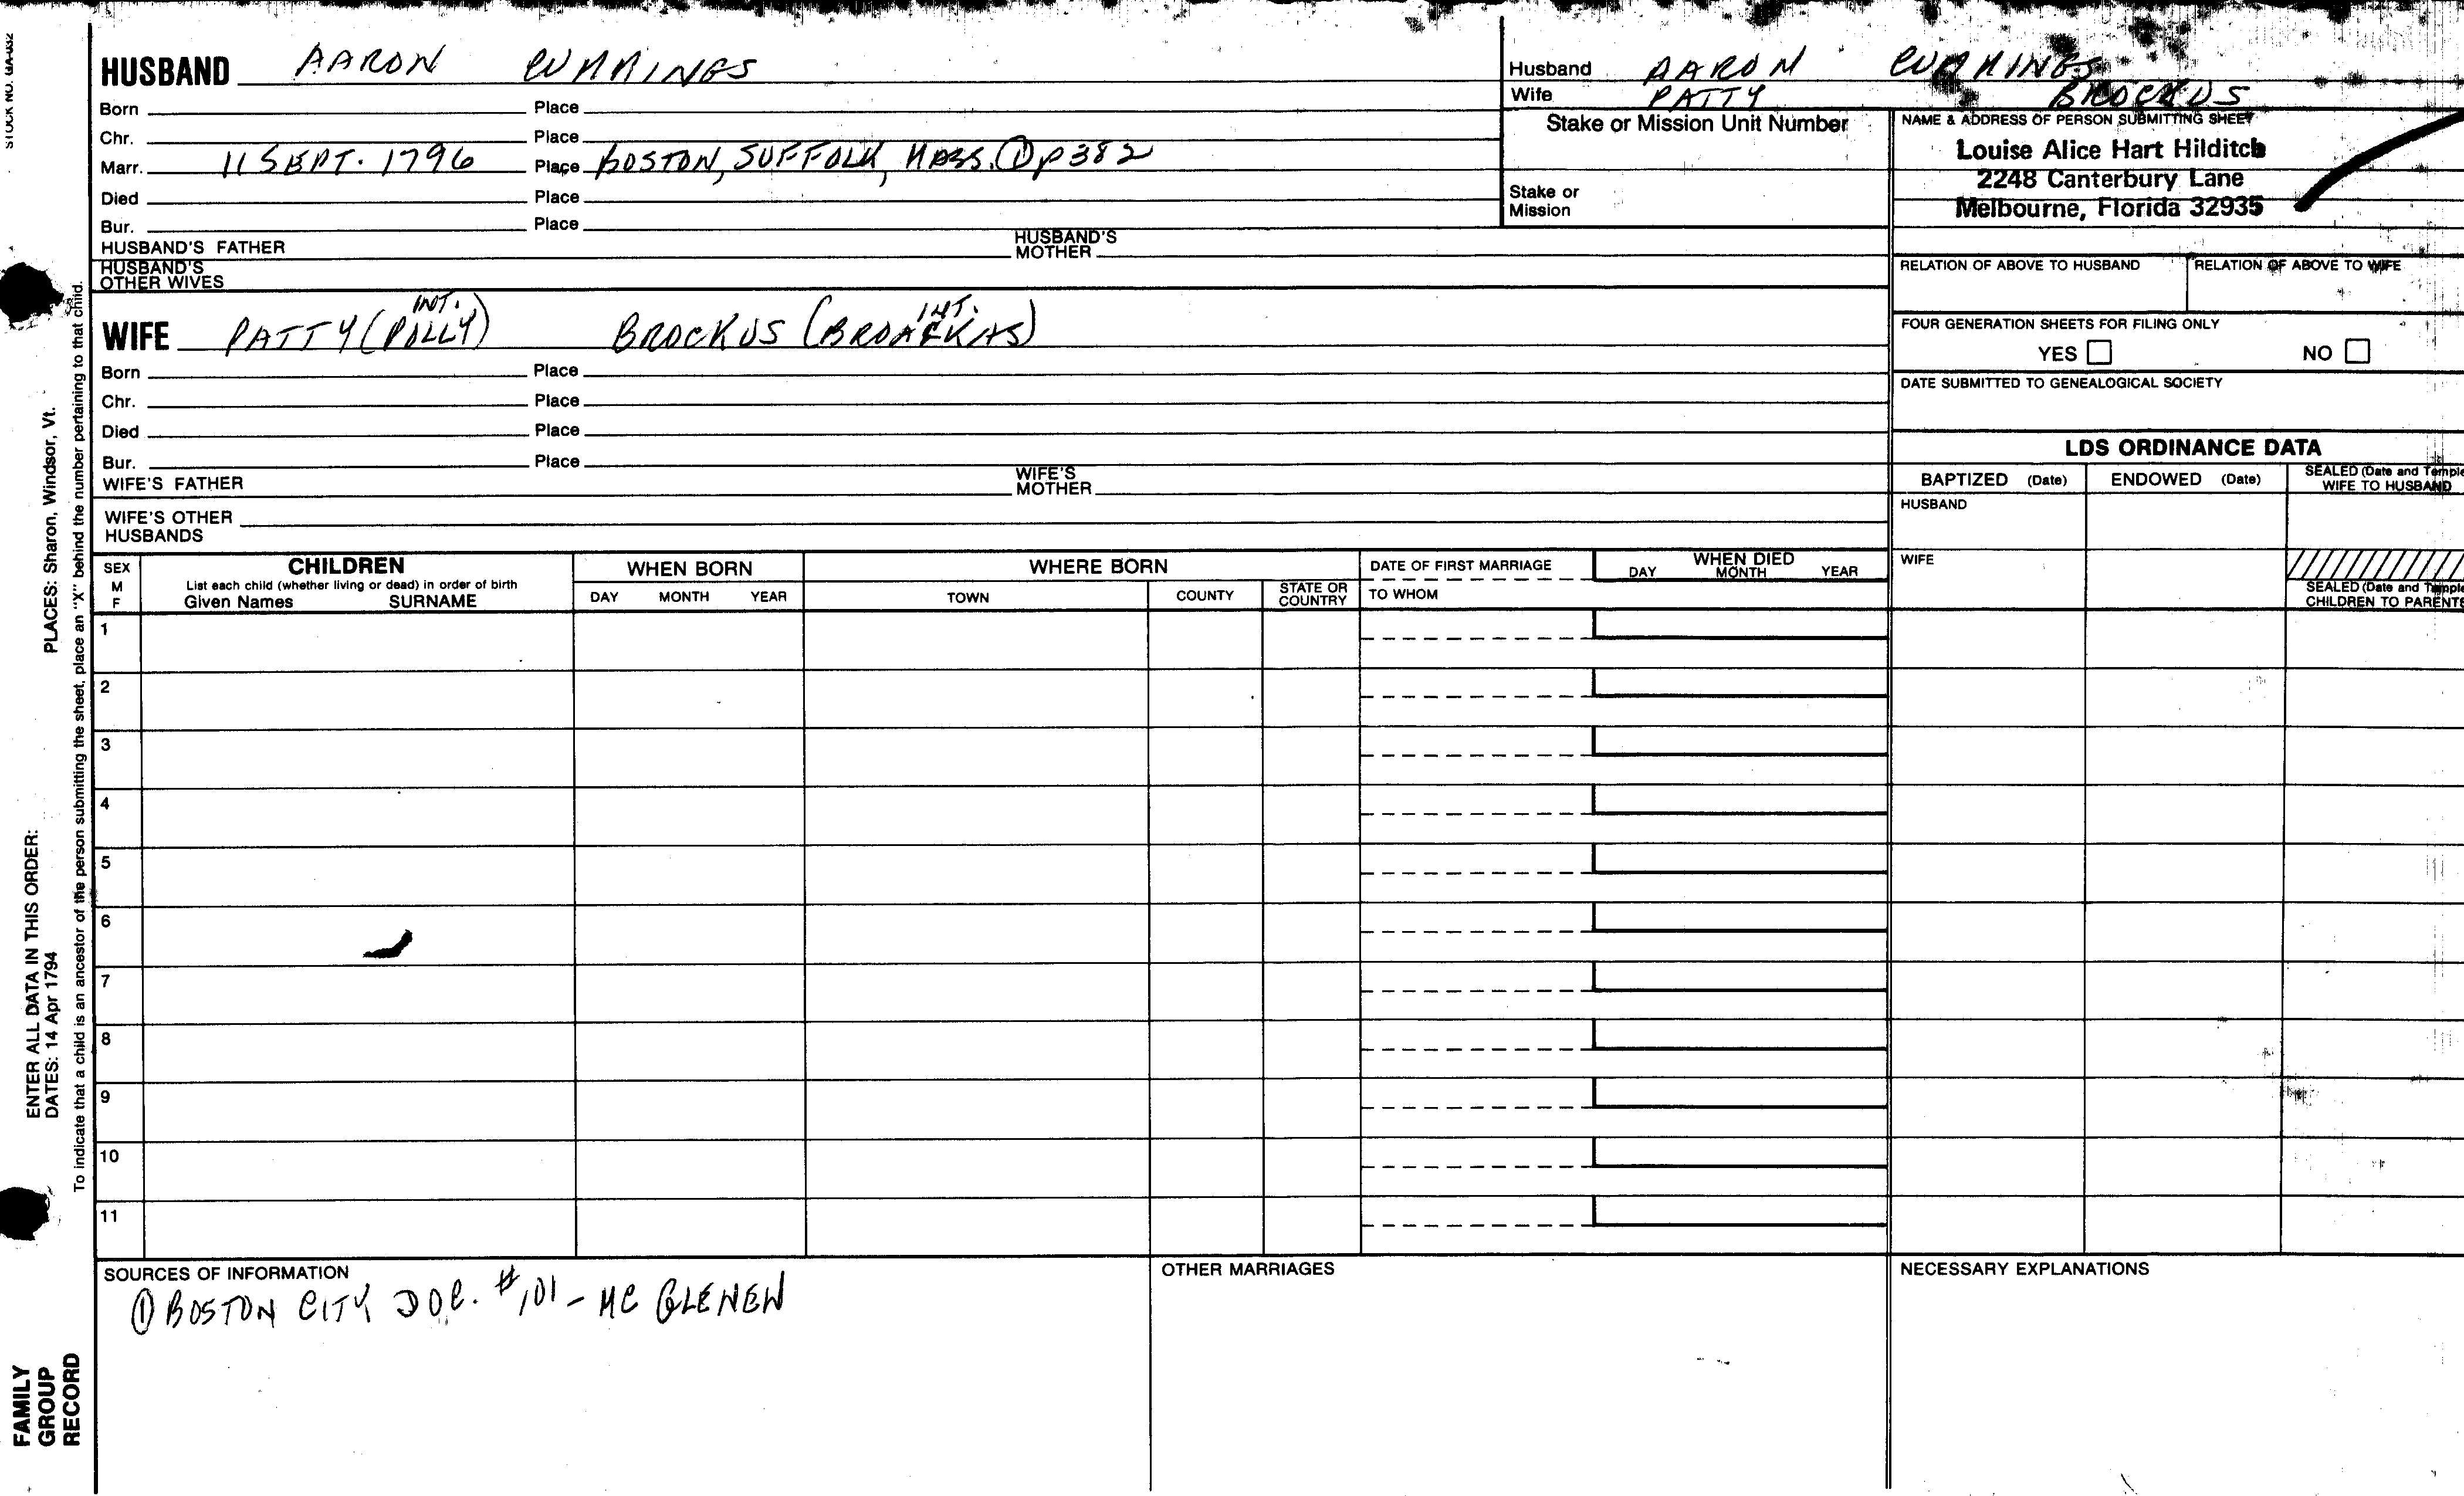 STOCK NO. GA-032
HUSBAND AARON CUMMINGS
Born Place
Chr. Place
Marr. 11 SEPT. 1796 Place BOSTON, SUFFOLK, MASS. ① p 382
Died Place
Bur. Place
HUSBAND'S FATHER HUSBAND'S MOTHER
HUSBAND'S OTHER WIVES
Husband AARON CUMMINGS
Wife PATTY BROCKUS
Stake or Mission Unit Number
Stake or Mission
NAME & ADDRESS OF PERSON SUBMITTING SHEET
Louise Alice Hart Hilditch
2248 Canterbury Lane
Melbourne, Florida 32935
RELATION OF ABOVE TO HUSBAND RELATION OF ABOVE TO WIFE
FOUR GENERATION SHEETS FOR FILING ONLY
YES NO
DATE SUBMITTED TO GENEALOGICAL SOCIETY
INT. INT.
WIFE PATTY (POLLY) BROCKUS
Born Place
Chr. Place
Died Place
Bur. Place
WIFE'S FATHER WIFE'S MOTHER
WIFE'S OTHER HUSBANDS
LDS ORDINANCE DATA
BAPTIZED (Date) ENDOWED (Date) SEALED (Date and Temple) WIFE TO HUSBAND
HUSBAND
WIFE
SEALED (Date and Temple) CHILDREN TO PARENTS
SEX M F
CHILDREN
List each child (whether living or dead) in order of birth
Given Names SURNAME
WHEN BORN
DAY MONTH YEAR
WHERE BORN
TOWN COUNTY STATE OR COUNTRY
DATE OF FIRST MARRIAGE
TO WHOM
WHEN DIED
DAY MONTH YEAR
1
2
3
4
5
6
7
8
9
10
11
SOURCES OF INFORMATION
① BOSTON CITY DOC. #101 - MC GLENEN
OTHER MARRIAGES
NECESSARY EXPLANATIONS
PLACES: Sharon, Windsor, Vt.
ENTER ALL DATA IN THIS ORDER:
DATES: 14 Apr 1794
To indicate that a child is an ancestor of the person submitting the sheet, place an "X" behind the number pertaining to that child.
FAMILY
GROUP
RECORD